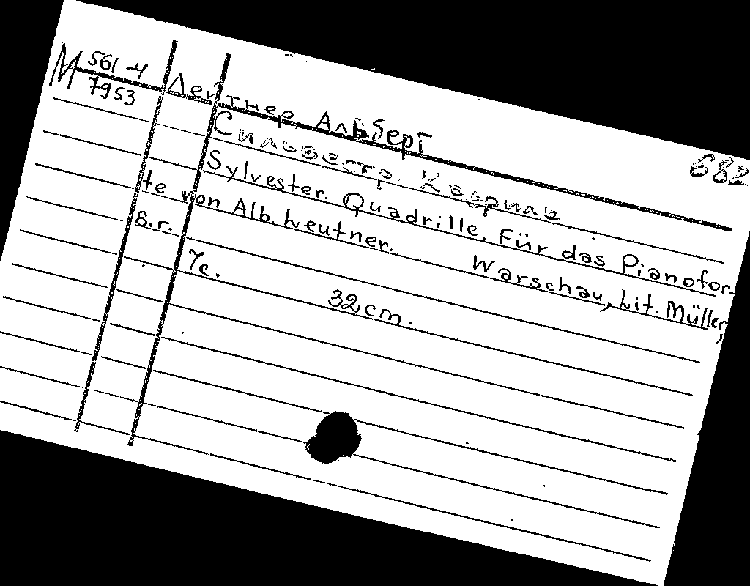 М 561-4
7953
Лейтнер, Альберт
682
Сильвестр. Кадриль
Sylvester. Quadrille. Für das Pianofor-
te von Alb. Leutner. Warschau, Lit. Müller,
s.r.
7c. 32 cm.